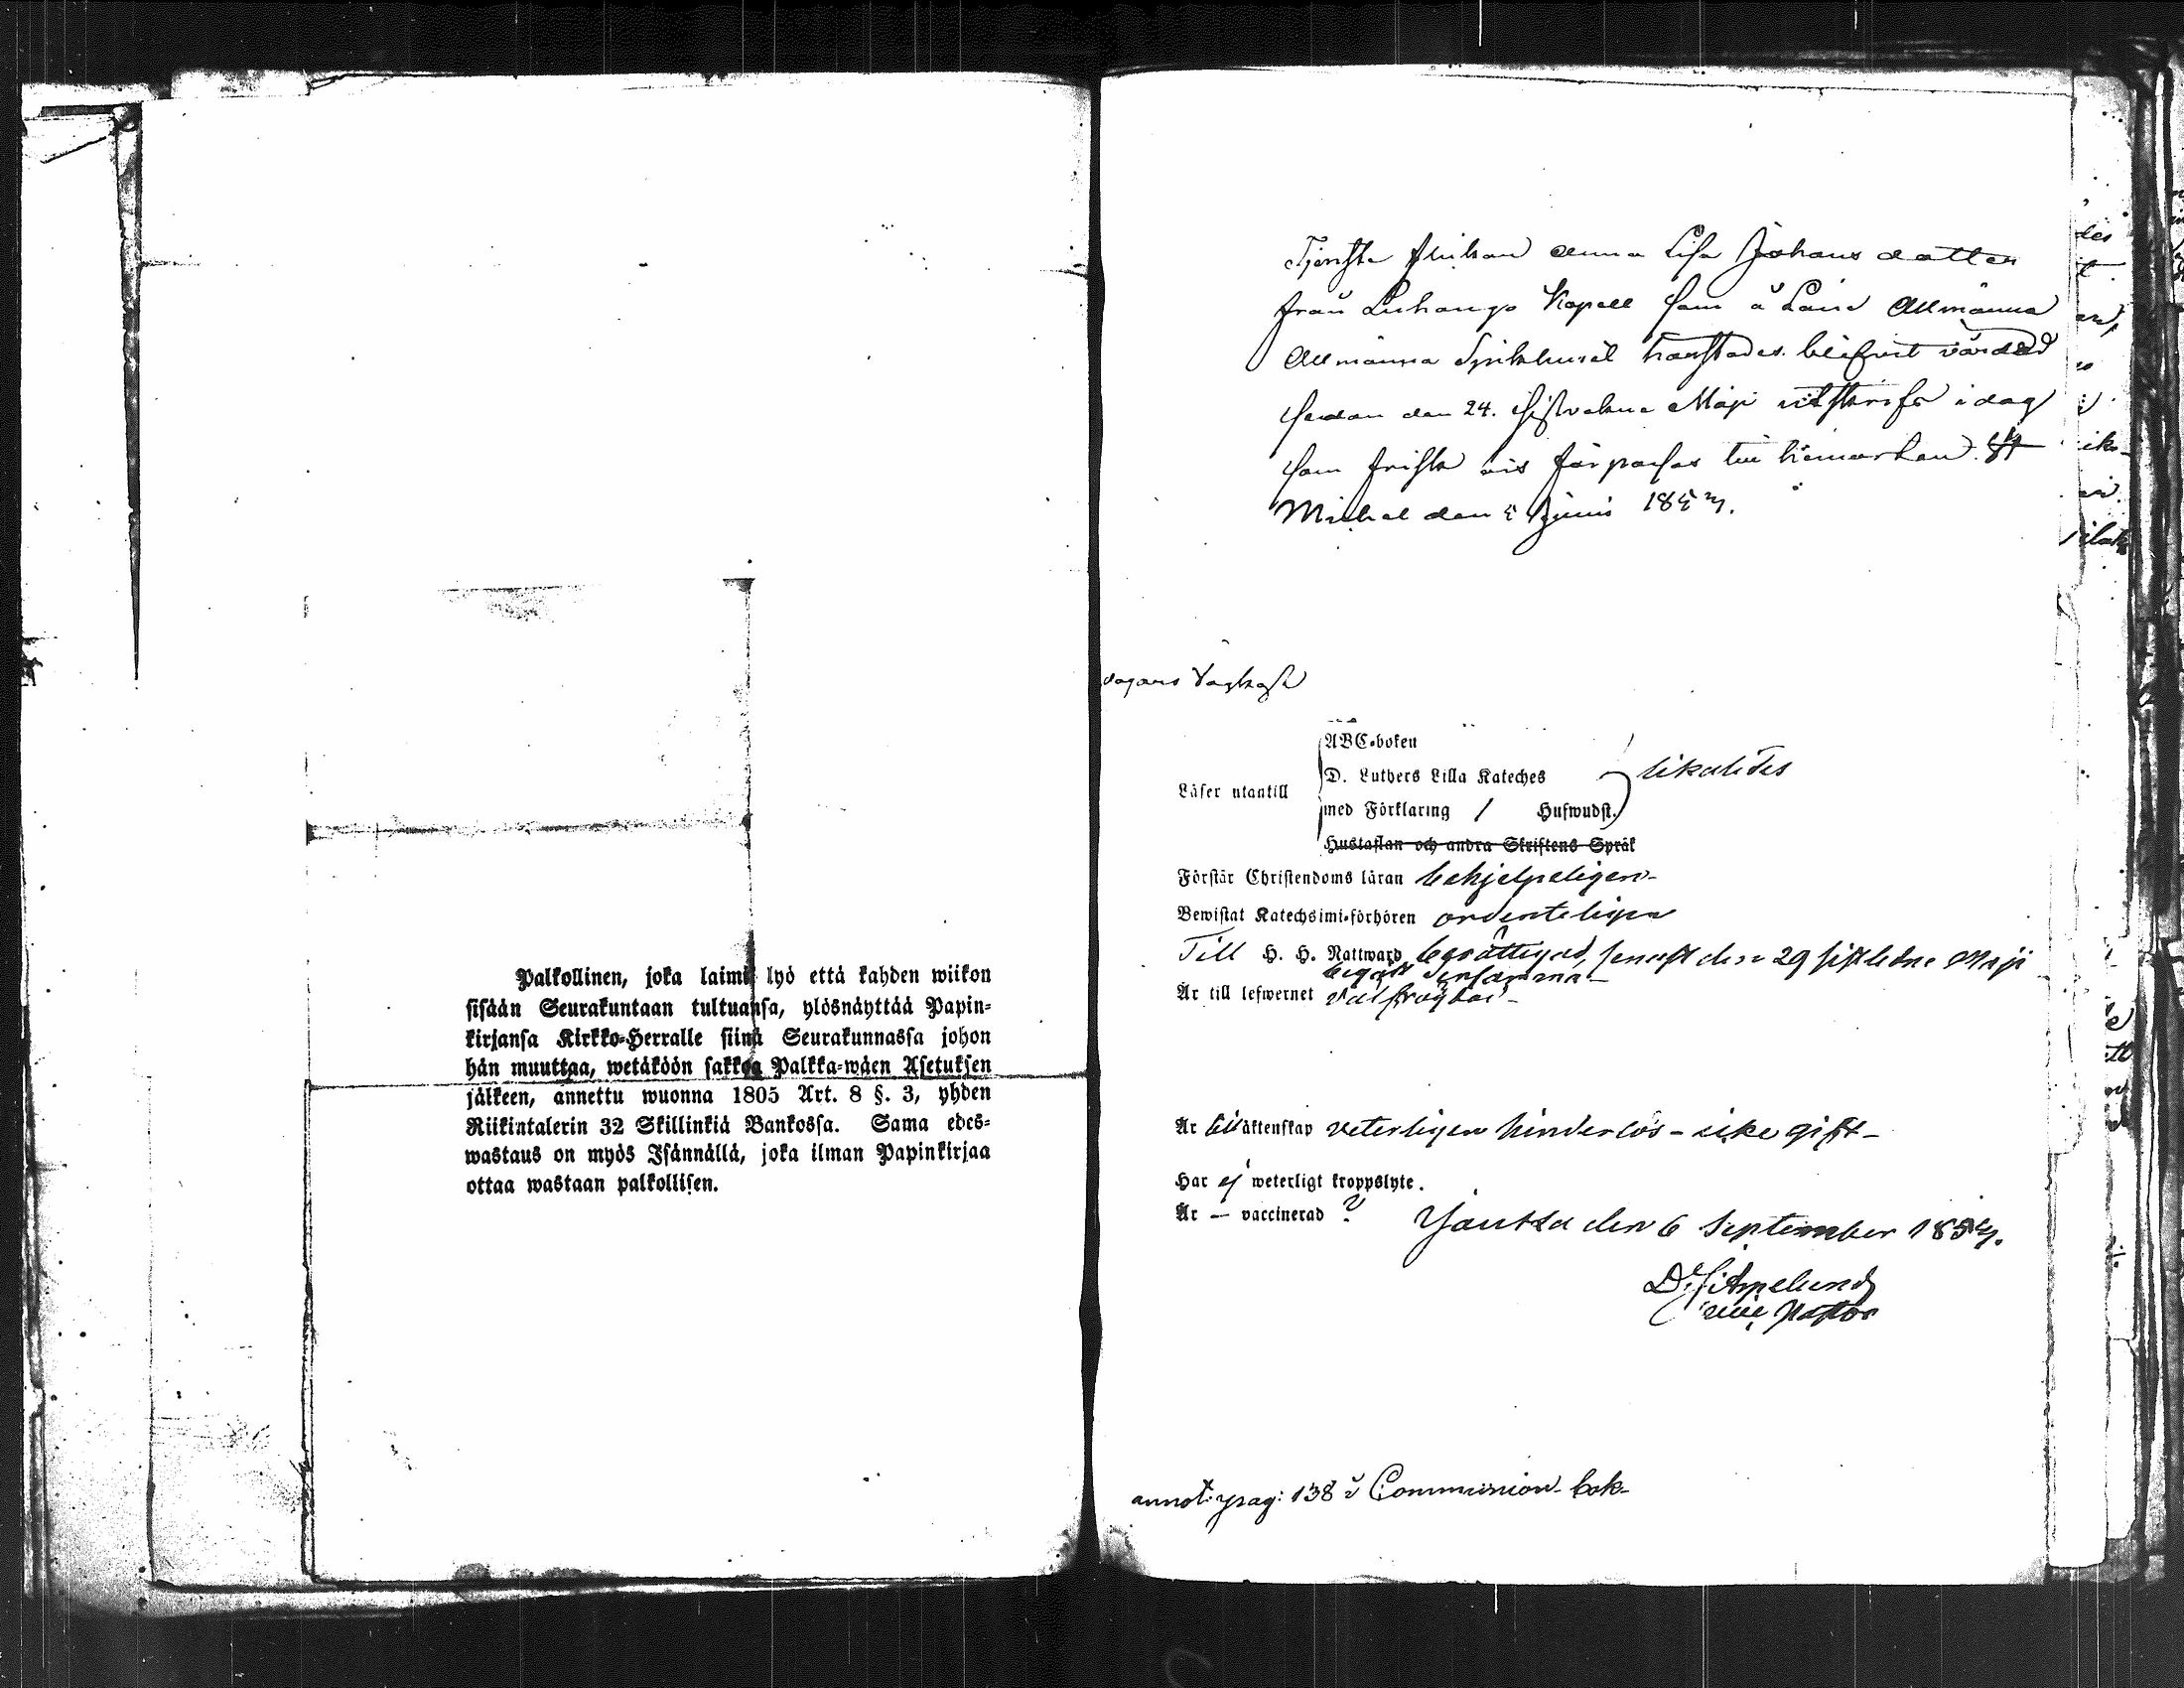 Palkollinen, joka laimi lyö että kahden wiikon
sisään Seurakuntaan tultuansa, ylösnäyttää Papin-
kirjansa Kirkko-Herralle siinä Seurakunnassa johon
hän muuttaa, wetäköön sakkoa Palkka-wäen Asetuksen
jälkeen, annettu wuonna 1805 Art. 8 §. 3, yhden
Riikintalerin 32 Skillinkiä Bankossa. Sama edes-
wastaus on myös Isännällä, joka ilman Papinkirjaa
ottaa wastaan palkollisen.
Tjensteflickan Anna Lisa Johansdotter
från Luhango Kapell som å Läns Allmänna
Allmänna Sjukhuset härstädes blifvit vårdad
sedan den 24. sistvekne Maji utskrifs i dag
som frisk
Michel den Junii
ABC-boken
D. Luthers Lilla Kateches
Läser utantill
med Förklaring / Hufwudst.
likaledes
Hustaflan och andra Skriftens Språk
Förstår Christendoms läran behjelpeligen-
Bewistat Katechsimi-förhören ordenteligen
Till H. H. Nattward berättigad, senast den 29 sistledne Maji
begått densamma-
Är till lefwernet välfrägdad-
Är till äktenskap veterligen hinderlös - icke gift-
Har ej weterligt kroppslyte.
Är — vaccinerad ?
Joutsa den 6 September
Pastor
annot: pag: 138 i Communion-bok-